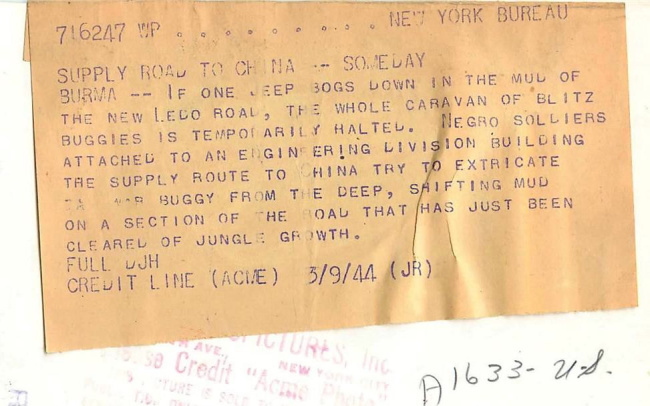 716247 WP . . . . . . . . . . NEW YORK BUREAU
SUPPLY ROAD TO CHINA -- SOMEDAY
BURMA -- IF ONE JEEP BOGS DOWN IN THE MUD OF
THE NEW LEDO ROAD, THE WHOLE CARAVAN OF BLITZ
BUGGIES IS TEMPORARILY HALTED. NEGRO SOLDIERS
ATTACHED TO AN ENGINEERING DIVISION BUILDING
THE SUPPLY ROUTE TO CHINA TRY TO EXTRICATE
WAR BUGGY FROM THE DEEP, SHIFTING MUD
ON A SECTION OF THE ROAD THAT HAS JUST BEEN
CLEARED OF JUNGLE GROWTH.
FULL DJH
CREDIT LINE (ACME) 3/9/44 (JR)
PICTURES, Inc
AVE., NEW YORK CITY
Credit "Acme Photo"
PICTURE IS SOLD
A1633- U.S.